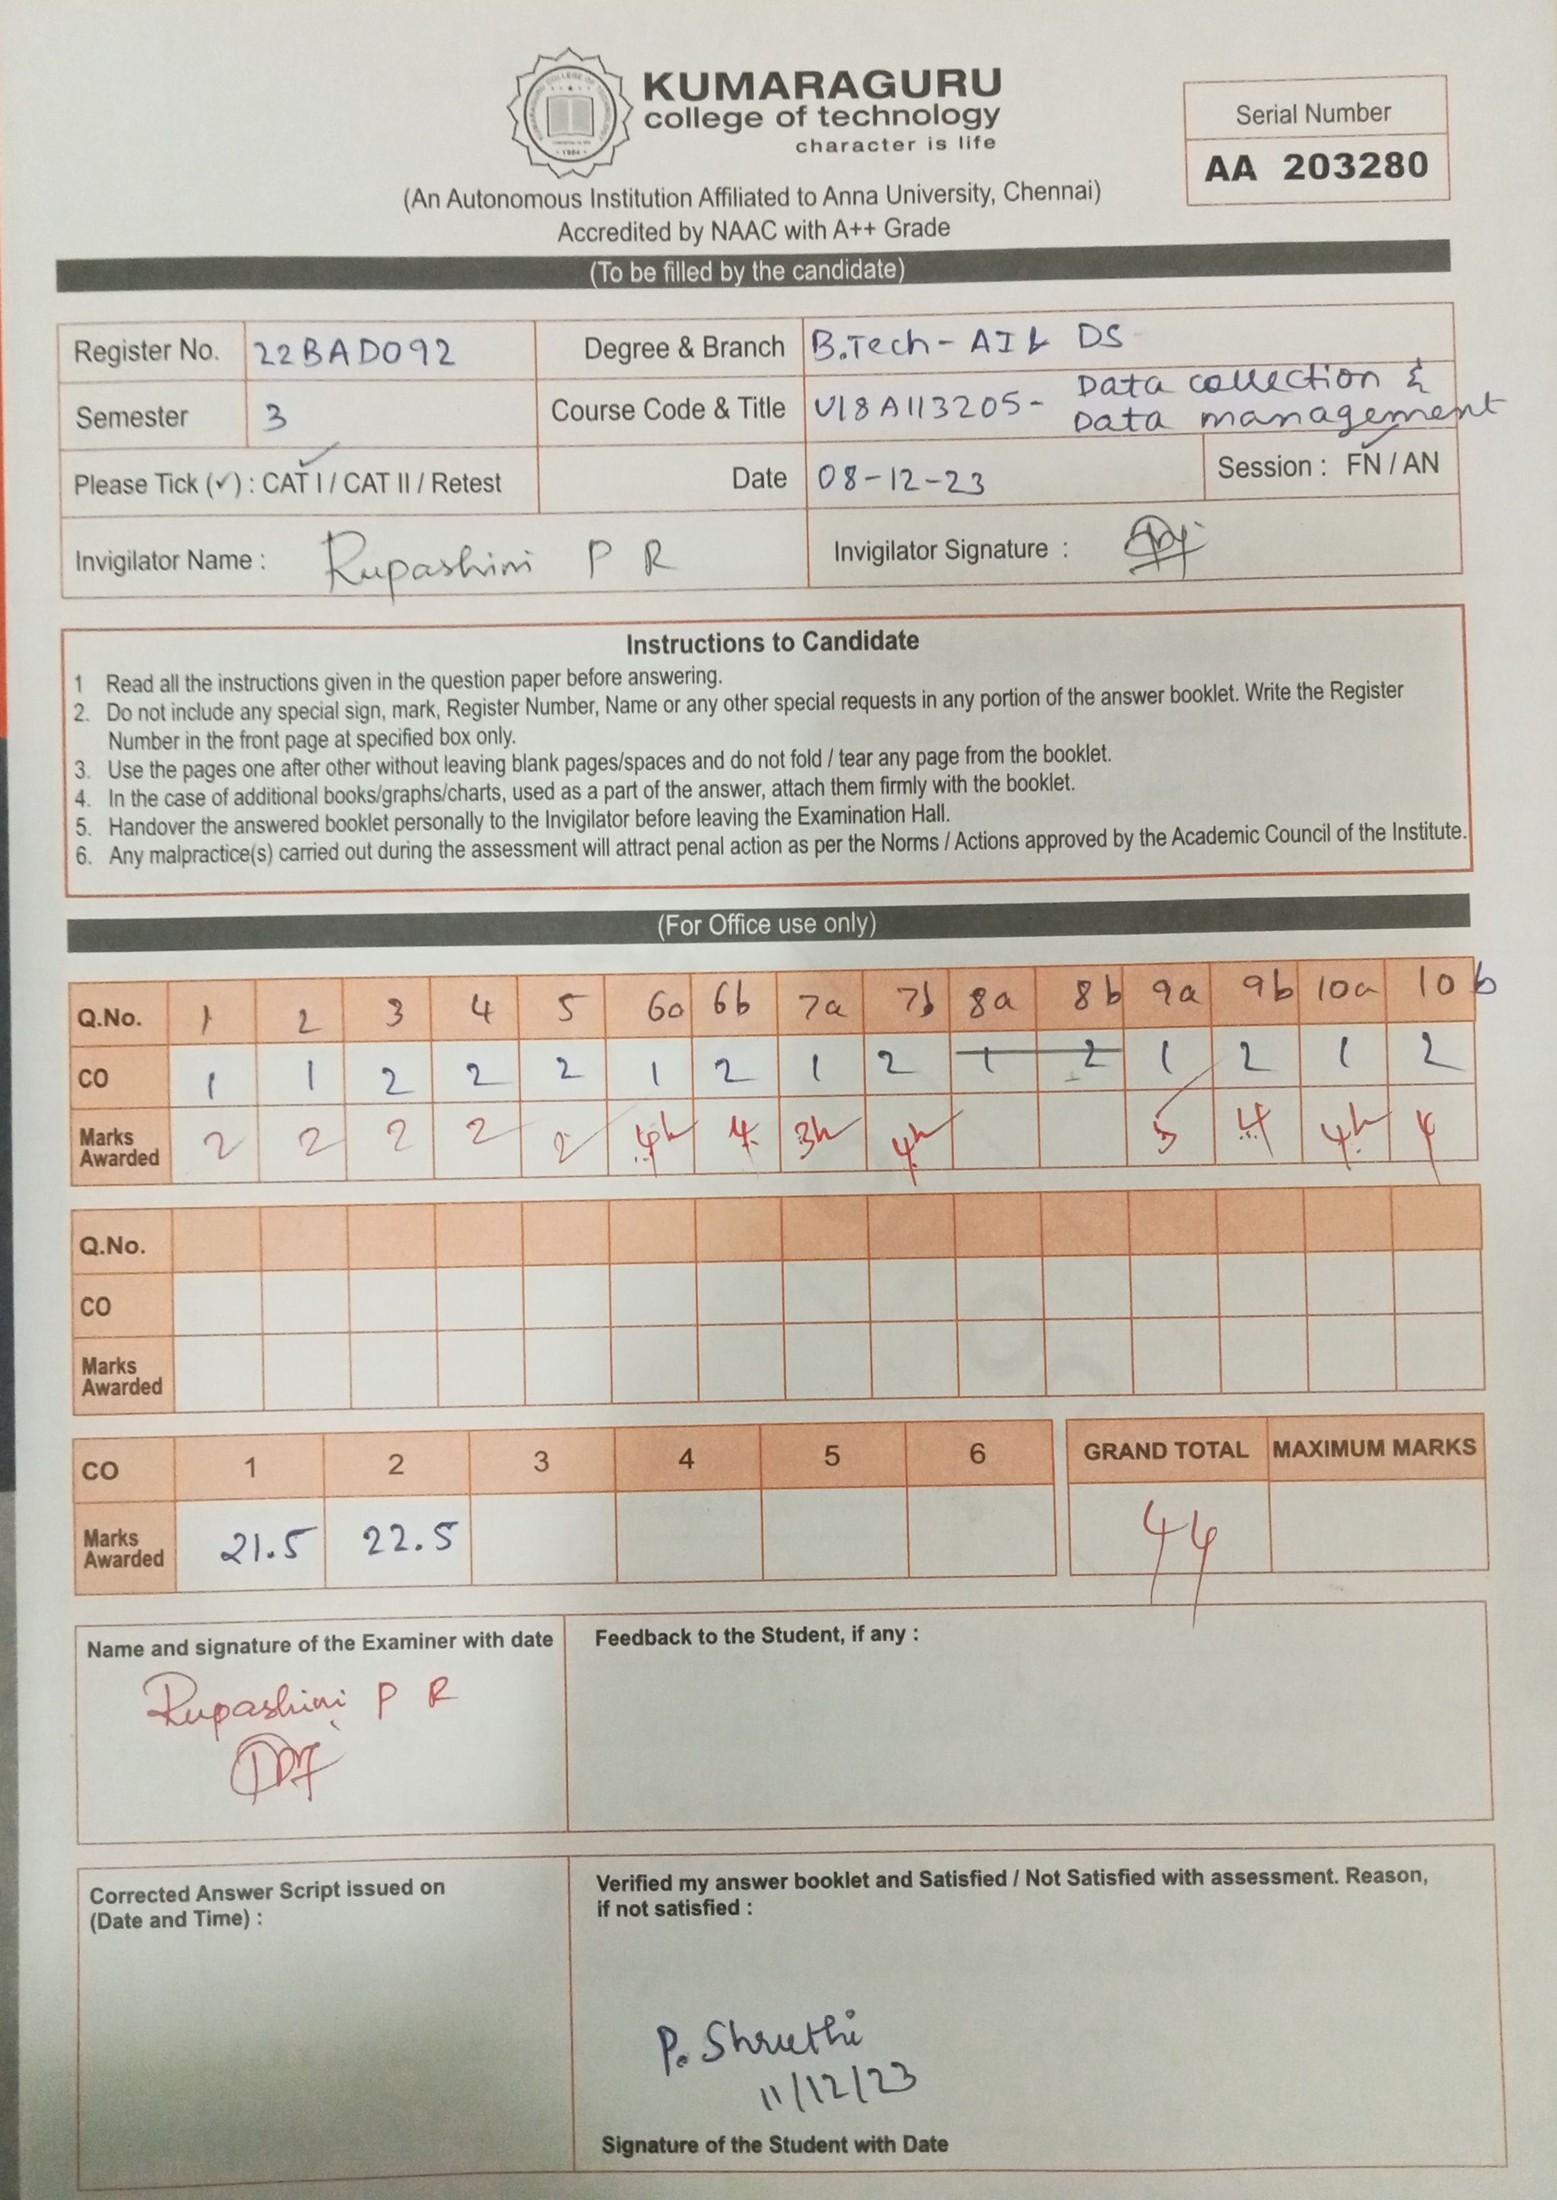 KUMARAGURU
college of technology
character is life
(An Autonomous Institution Affiliated to Anna University, Chennai)
Accredited by NAAC with A++ Grade
Serial Number
AA 203280
(To be filled by the candidate)
Register No. 22BAD092 Degree & Branch B.Tech - AI & DS
Semester 3 Course Code & Title U18AII3205 - Data collection & Data management
Please Tick (✓) : CAT I / CAT II / Retest Date 08-12-23 Session : FN / AN
Invigilator Name : Rupashini P R Invigilator Signature :
Instructions to Candidate
1 Read all the instructions given in the question paper before answering.
2. Do not include any special sign, mark, Register Number, Name or any other special requests in any portion of the answer booklet. Write the Register
Number in the front page at specified box only.
3. Use the pages one after other without leaving blank pages/spaces and do not fold / tear any page from the booklet.
4. In the case of additional books/graphs/charts, used as a part of the answer, attach them firmly with the booklet.
5. Handover the answered booklet personally to the Invigilator before leaving the Examination Hall.
6. Any malpractice(s) carried out during the assessment will attract penal action as per the Norms / Actions approved by the Academic Council of the Institute.
(For Office use only)
Q.No. 1 2 3 4 5 6a 6b 7a 7b 8a 8b 9a 9b 10a 10b
CO 1 1 2 2 2 1 2 1 2 1 2 1 2 1 2
Marks Awarded 2 2 2 2 2 4½ 4 3½ 4½ 5 4 4½ 4
Q.No.
CO
Marks Awarded
CO 1 2 3 4 5 6 GRAND TOTAL MAXIMUM MARKS
Marks Awarded 21.5 22.5 44
Name and signature of the Examiner with date
Rupashini P R
Feedback to the Student, if any :
Corrected Answer Script issued on
(Date and Time) :
Verified my answer booklet and Satisfied / Not Satisfied with assessment. Reason,
if not satisfied :
P. Shruthi
11/12/23
Signature of the Student with Date